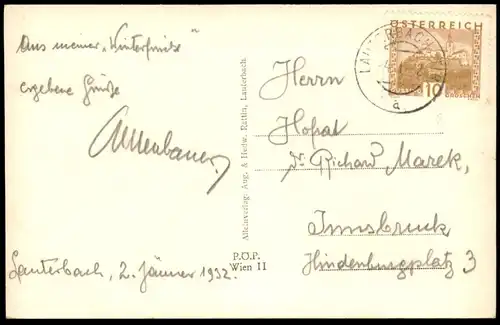 Aus meiner „Winterfrische"
ergebene Grüße
Lauterbach, 2. Jänner 1932.
Alleinverlag: Aug. & Hedw. Rattin, Lauterbach
P.O.P.
Wien II
ÖSTERREICH
10
GROSCHEN
LAUTERBACH
a
Herrn
Hofrat
Dr. Richard Marek,
Innsbruck
Hindenburgplatz 3